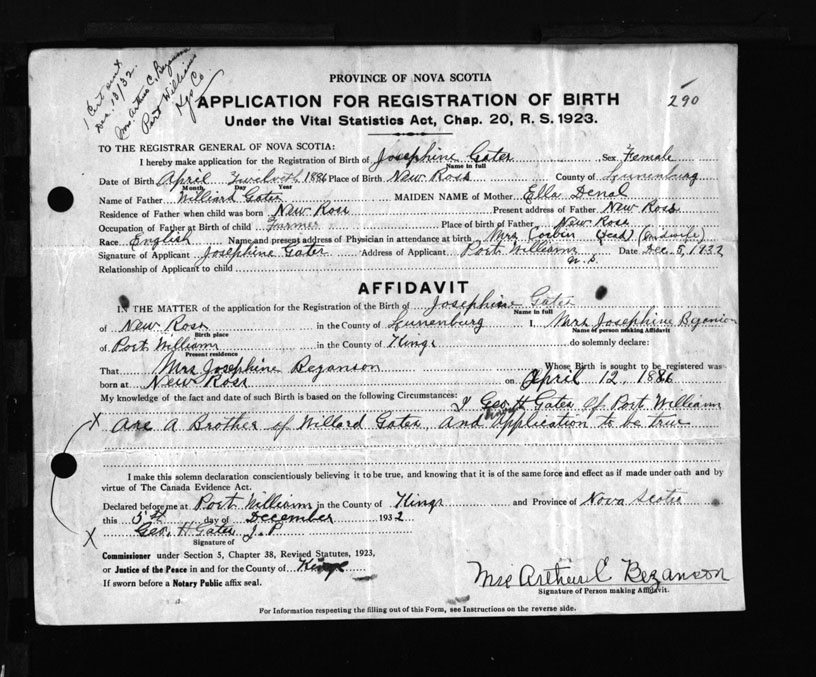 1 Cert sent
Dec. 13/32.
Mrs. Arthur C. Bezanson
Port Williams
Kgs Co.
PROVINCE OF NOVA SCOTIA
290
APPLICATION FOR REGISTRATION OF BIRTH
Under the Vital Statistics Act, Chap. 20, R. S. 1923.
TO THE REGISTRAR GENERAL OF NOVA SCOTIA:
I hereby make application for the Registration of Birth of Josephine Gates Sex Female
Name in full
Date of Birth April Twelveth 1886 Place of Birth New Ross County of Lunenburg
Month Day Year
Name of Father Williard Gates MAIDEN NAME of Mother Ella Denal
Residence of Father when child was born New Ross Present address of Father New Ross
Occupation of Father at Birth of child Farmer Place of birth of Father New Ross
Race English Name and present address of Physician in attendance at birth Mrs Corbin (midwife)
Signature of Applicant Josephine Gates Address of Applicant Port Williams Date Dec 5, 1932
N.S.
Relationship of Applicant to child
AFFIDAVIT
IN THE MATTER of the application for the Registration of the Birth of Josephine Gates
Name in full
of New Ross in the County of Lunenburg I, Mrs Josephine
Birth place Name of person making Affidavit
of Port William in the County of Kings do solemnly declare:
Present residence
That Mrs Josephine Bezanson Whose Birth is sought to be registered was
born at New Ross on April 12, 1886
My knowledge of the fact and date of such Birth is based on the following Circumstances: I Geo. H Gates Of Port William
X Are A Brother of Willard Gates, And Application to be true
I make this solemn declaration conscientiously believing it to be true, and knowing that it is of the same force and effect as if made under oath and by
virtue of The Canada Evidence Act.
Declared before me at Port William in the County of Kings and Province of Nova Scotia
this 5th day of December 1932
X Geo. H Gates J. P
Signature of
Commissioner under Section 5, Chapter 38, Revised Statutes, 1923,
or Justice of the Peace in and for the County of Kings
If sworn before a Notary Public affix seal.
Mrs Arthur C Bezanson
Signature of Person making Affidavit.
For Information respecting the filling out of this Form, see Instructions on the reverse side.